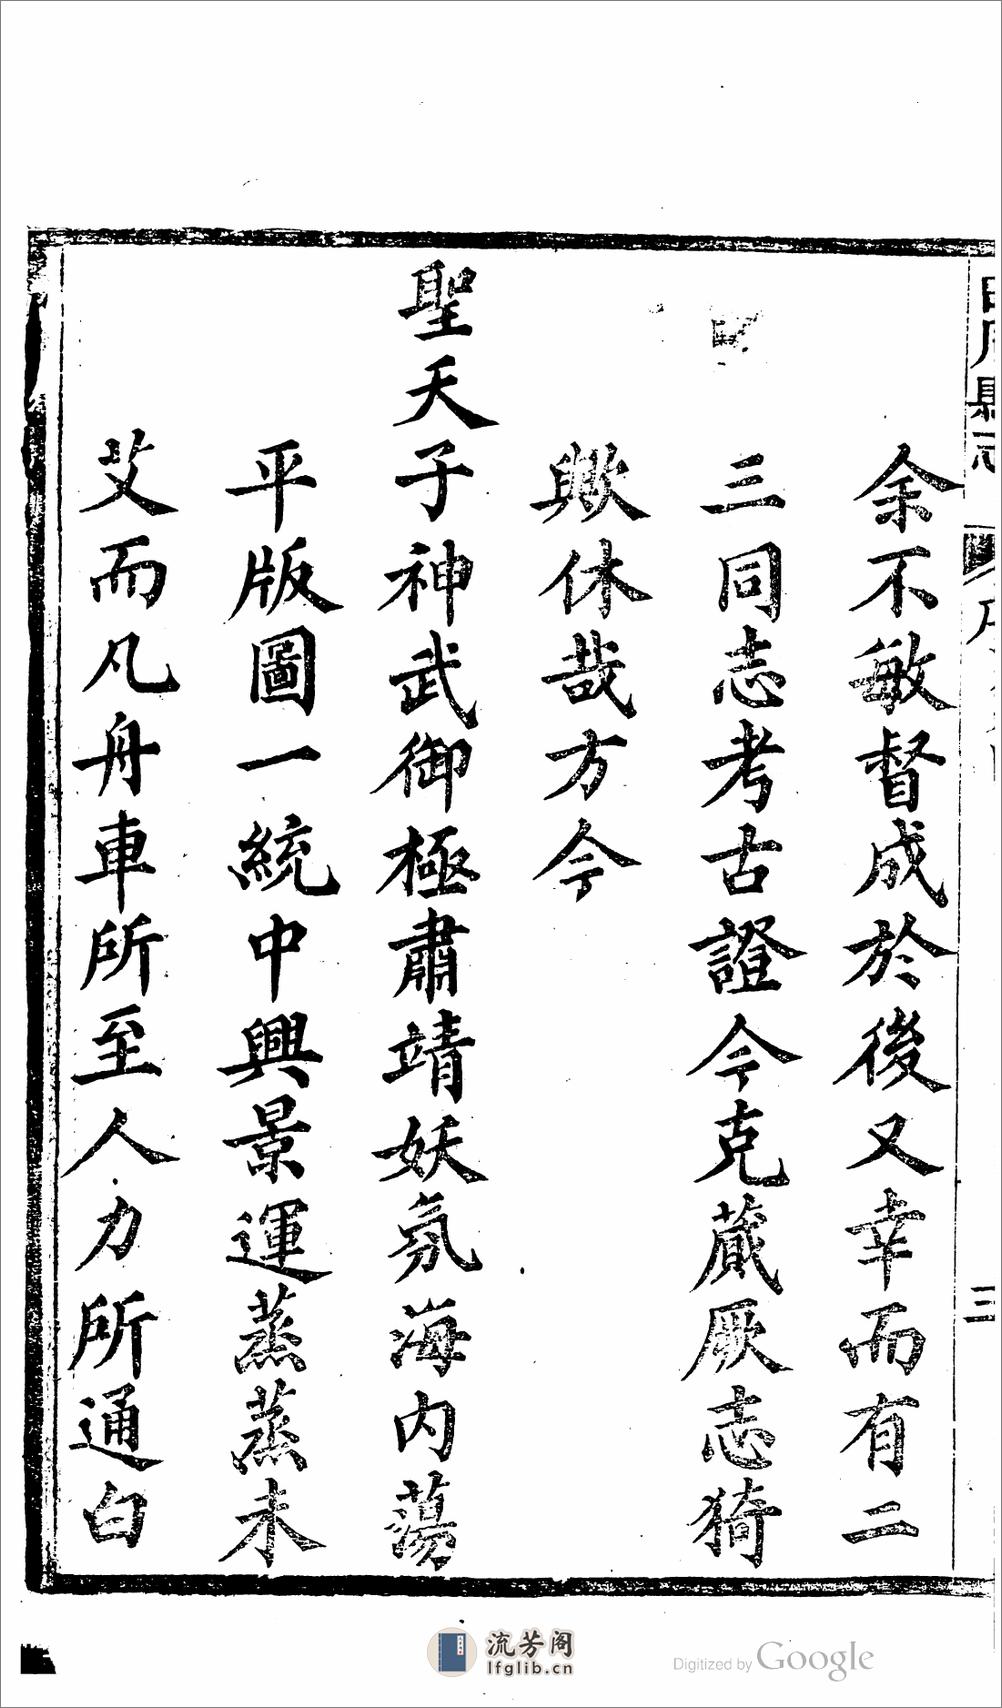 余不敏督成於後又幸而有二
三同志考古證今克蕆厥志猗
歟休哉方今
聖天子神武御極肅靖妖氛海内蕩
平版圖一統中興景運蒸蒸未
艾而凡舟車所至人力所通白
縣志
三
流芳阁
lfglib.cn
Digitized by Google